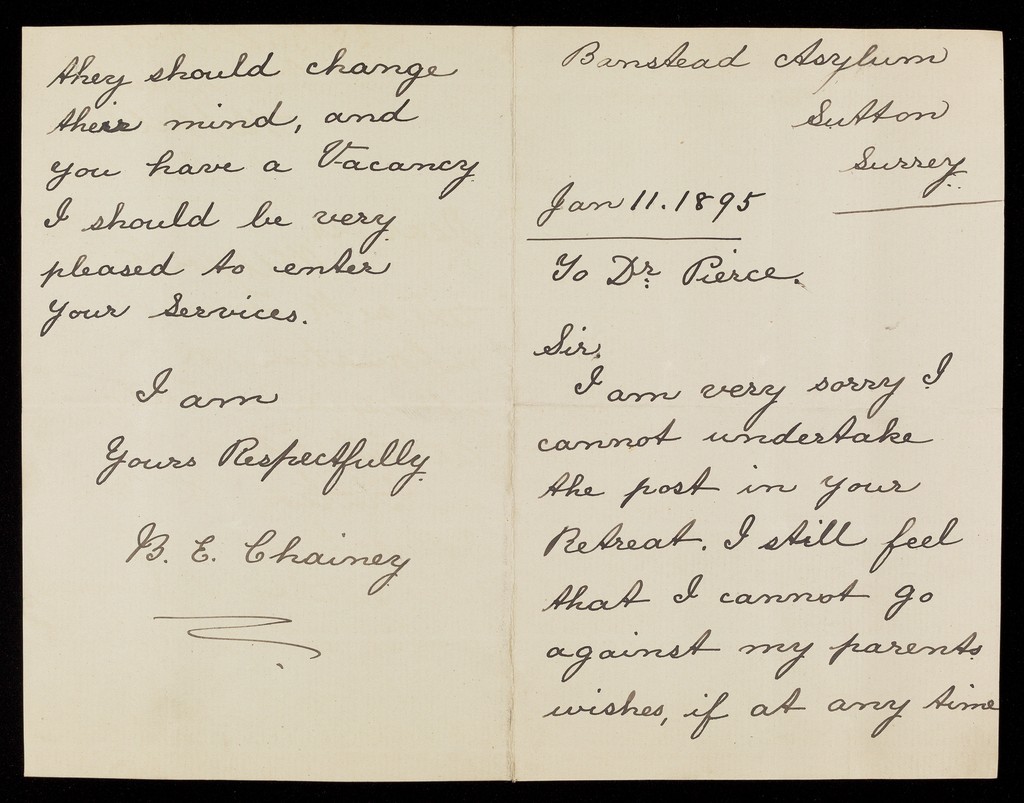 Banstead Asylum
Sutton
Surrey.
Jan 11. 1895
To Dr. Pierce.
Sir,
I am very sorry I
cannot undertake
the post in your
Retreat. I still feel
that I cannot go
against my parents
wishes, if at any time
they should change
their mind, and
you have a Vacancy
I should be very
pleased to enter
your Services.
I am
Yours Respectfully.
B. E. Chainey